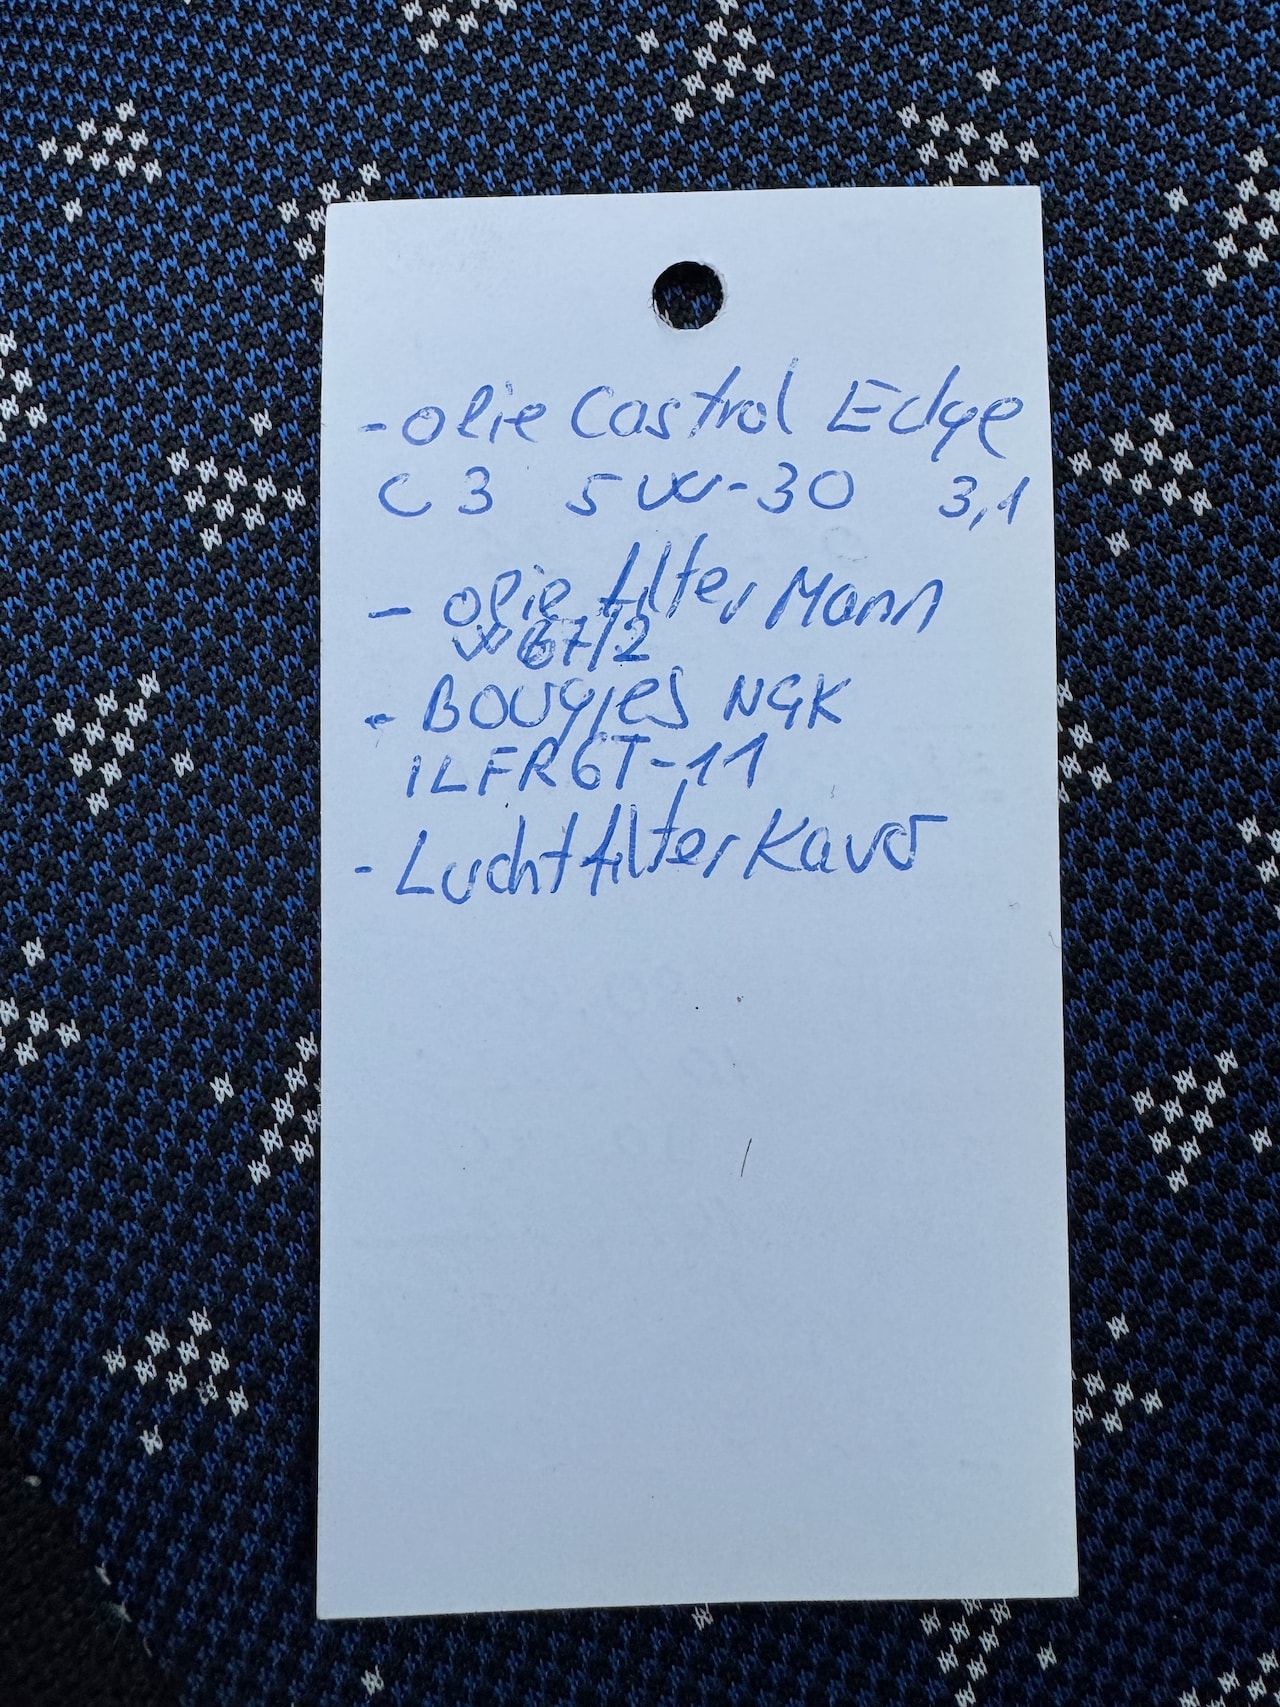 - olie Castrol Edge
C3 5W-30 3,1
- olie filter Mann
W67/2
- BOUGIES NGK
ILFR6T-11
- Luchtfilter Kavo